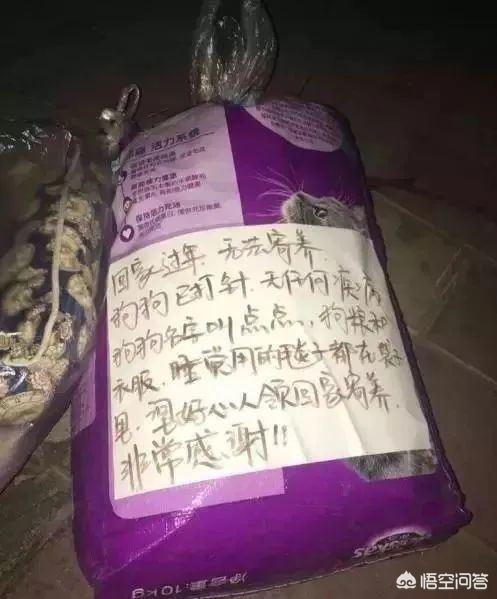 活力系统
回家过年.无法寄养.
狗狗已打针.无任何疾病
狗狗名字叫点点.狗粮和
衣服.睡觉用的毯子都在袋子
里.望好心人领回家寄养.
非常感谢!!
净含量:10kg
悟空问答